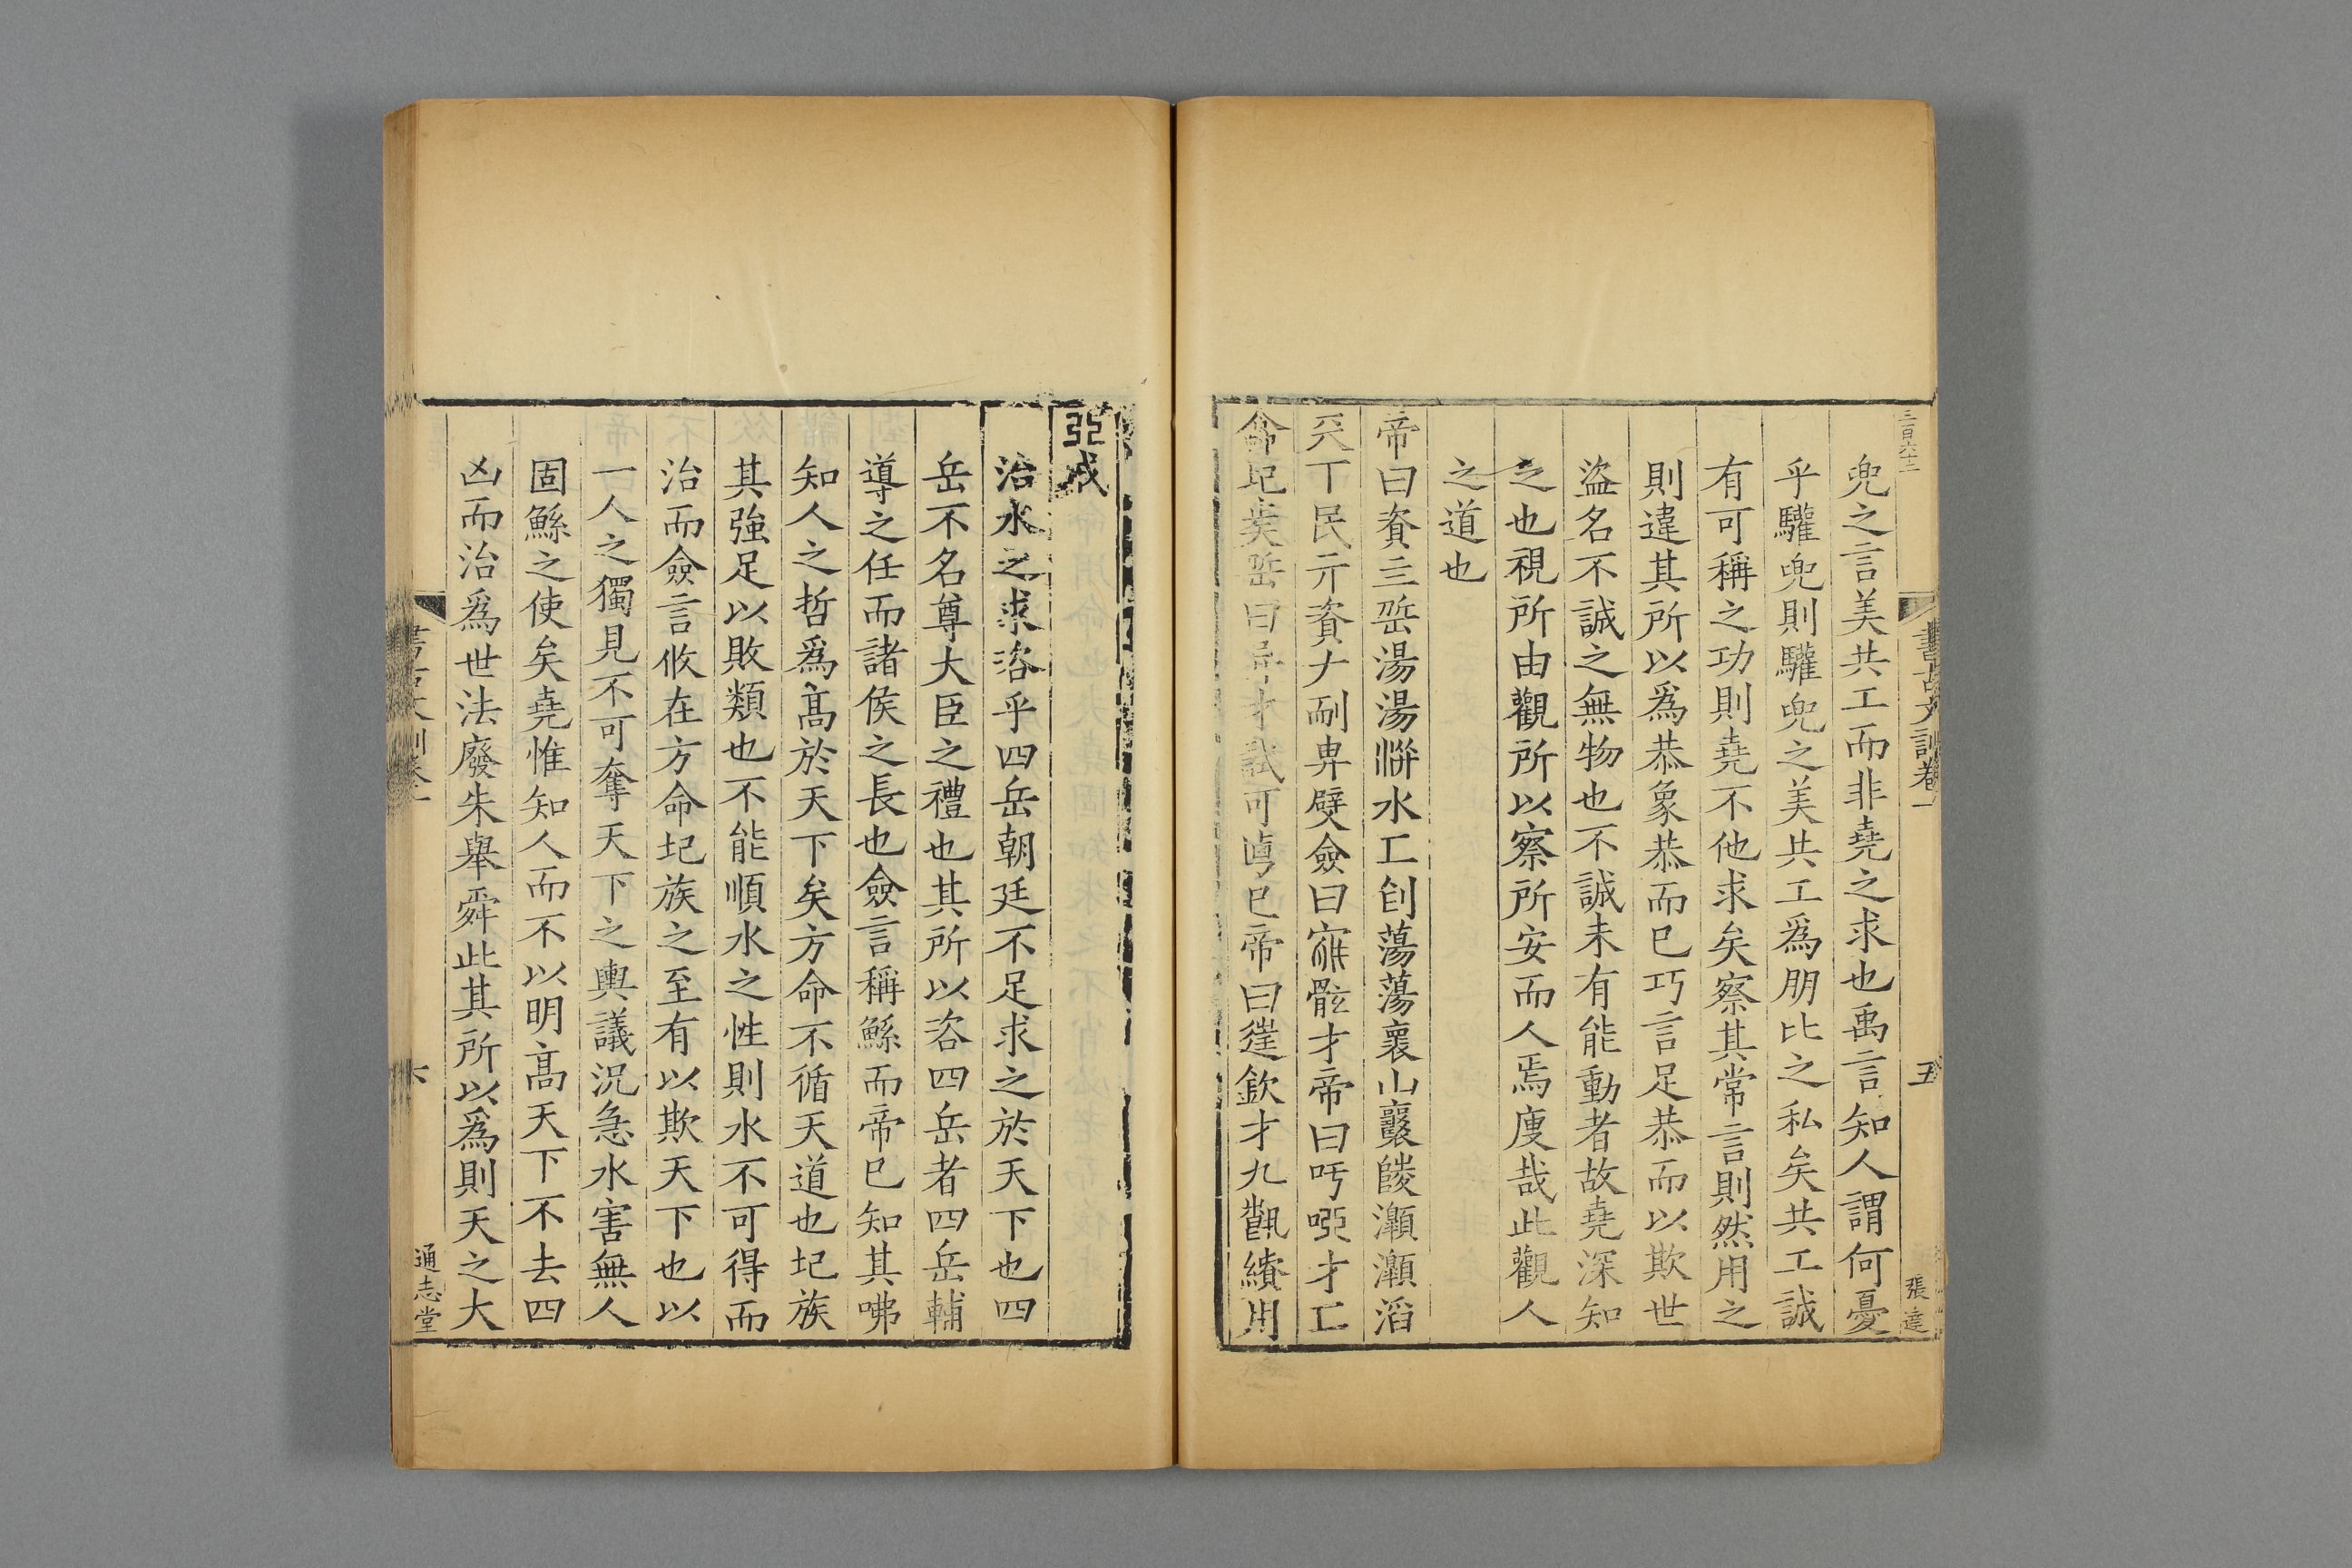 三百六十三
書古文訓卷一
五
張達
兜之言美共工而非堯之求也禹言知人謂何憂
乎驩兜則驩兜之美共工爲朋比之私矣共工誠
有可稱之功則堯不他求矣察其常言則然用之
則違其所以爲恭象恭而已巧言足恭而以欺世
盜名不誠之無物也不誠未有能動者故堯深知
之也視所由觀所以察所安而人焉廋哉此觀人
之道也
帝曰資亖嶅湯湯洴水工創蕩蕩褱山襄陵灝灝滔
兲丅民亓資ナ耏𢌿嬖僉曰𪧷骸才帝曰吁咈才工
命圮矣嶅曰异才試可𠧟已帝曰𨓹欽才九𩀌績用
弜成
治水之求咨乎四岳朝廷不足求之於天下也四
岳不名尊大臣之禮也其所以咨四岳者四岳輔
導之任而諸侯之長也僉言稱鯀而帝已知其咈
知人之哲爲高於天下矣方命不循天道也圮族
其強足以敗類也不能順水之性則水不可得而
治而僉言攸在方命圮族之至有以欺天下也以
一人之獨見不可奪天下之輿議況急水害無人
固鯀之使矣堯惟知人而不以明高天下不去四
凶而治爲世法廢朱舉舜此其所以爲則天之大
書古文訓卷一
六
通志堂